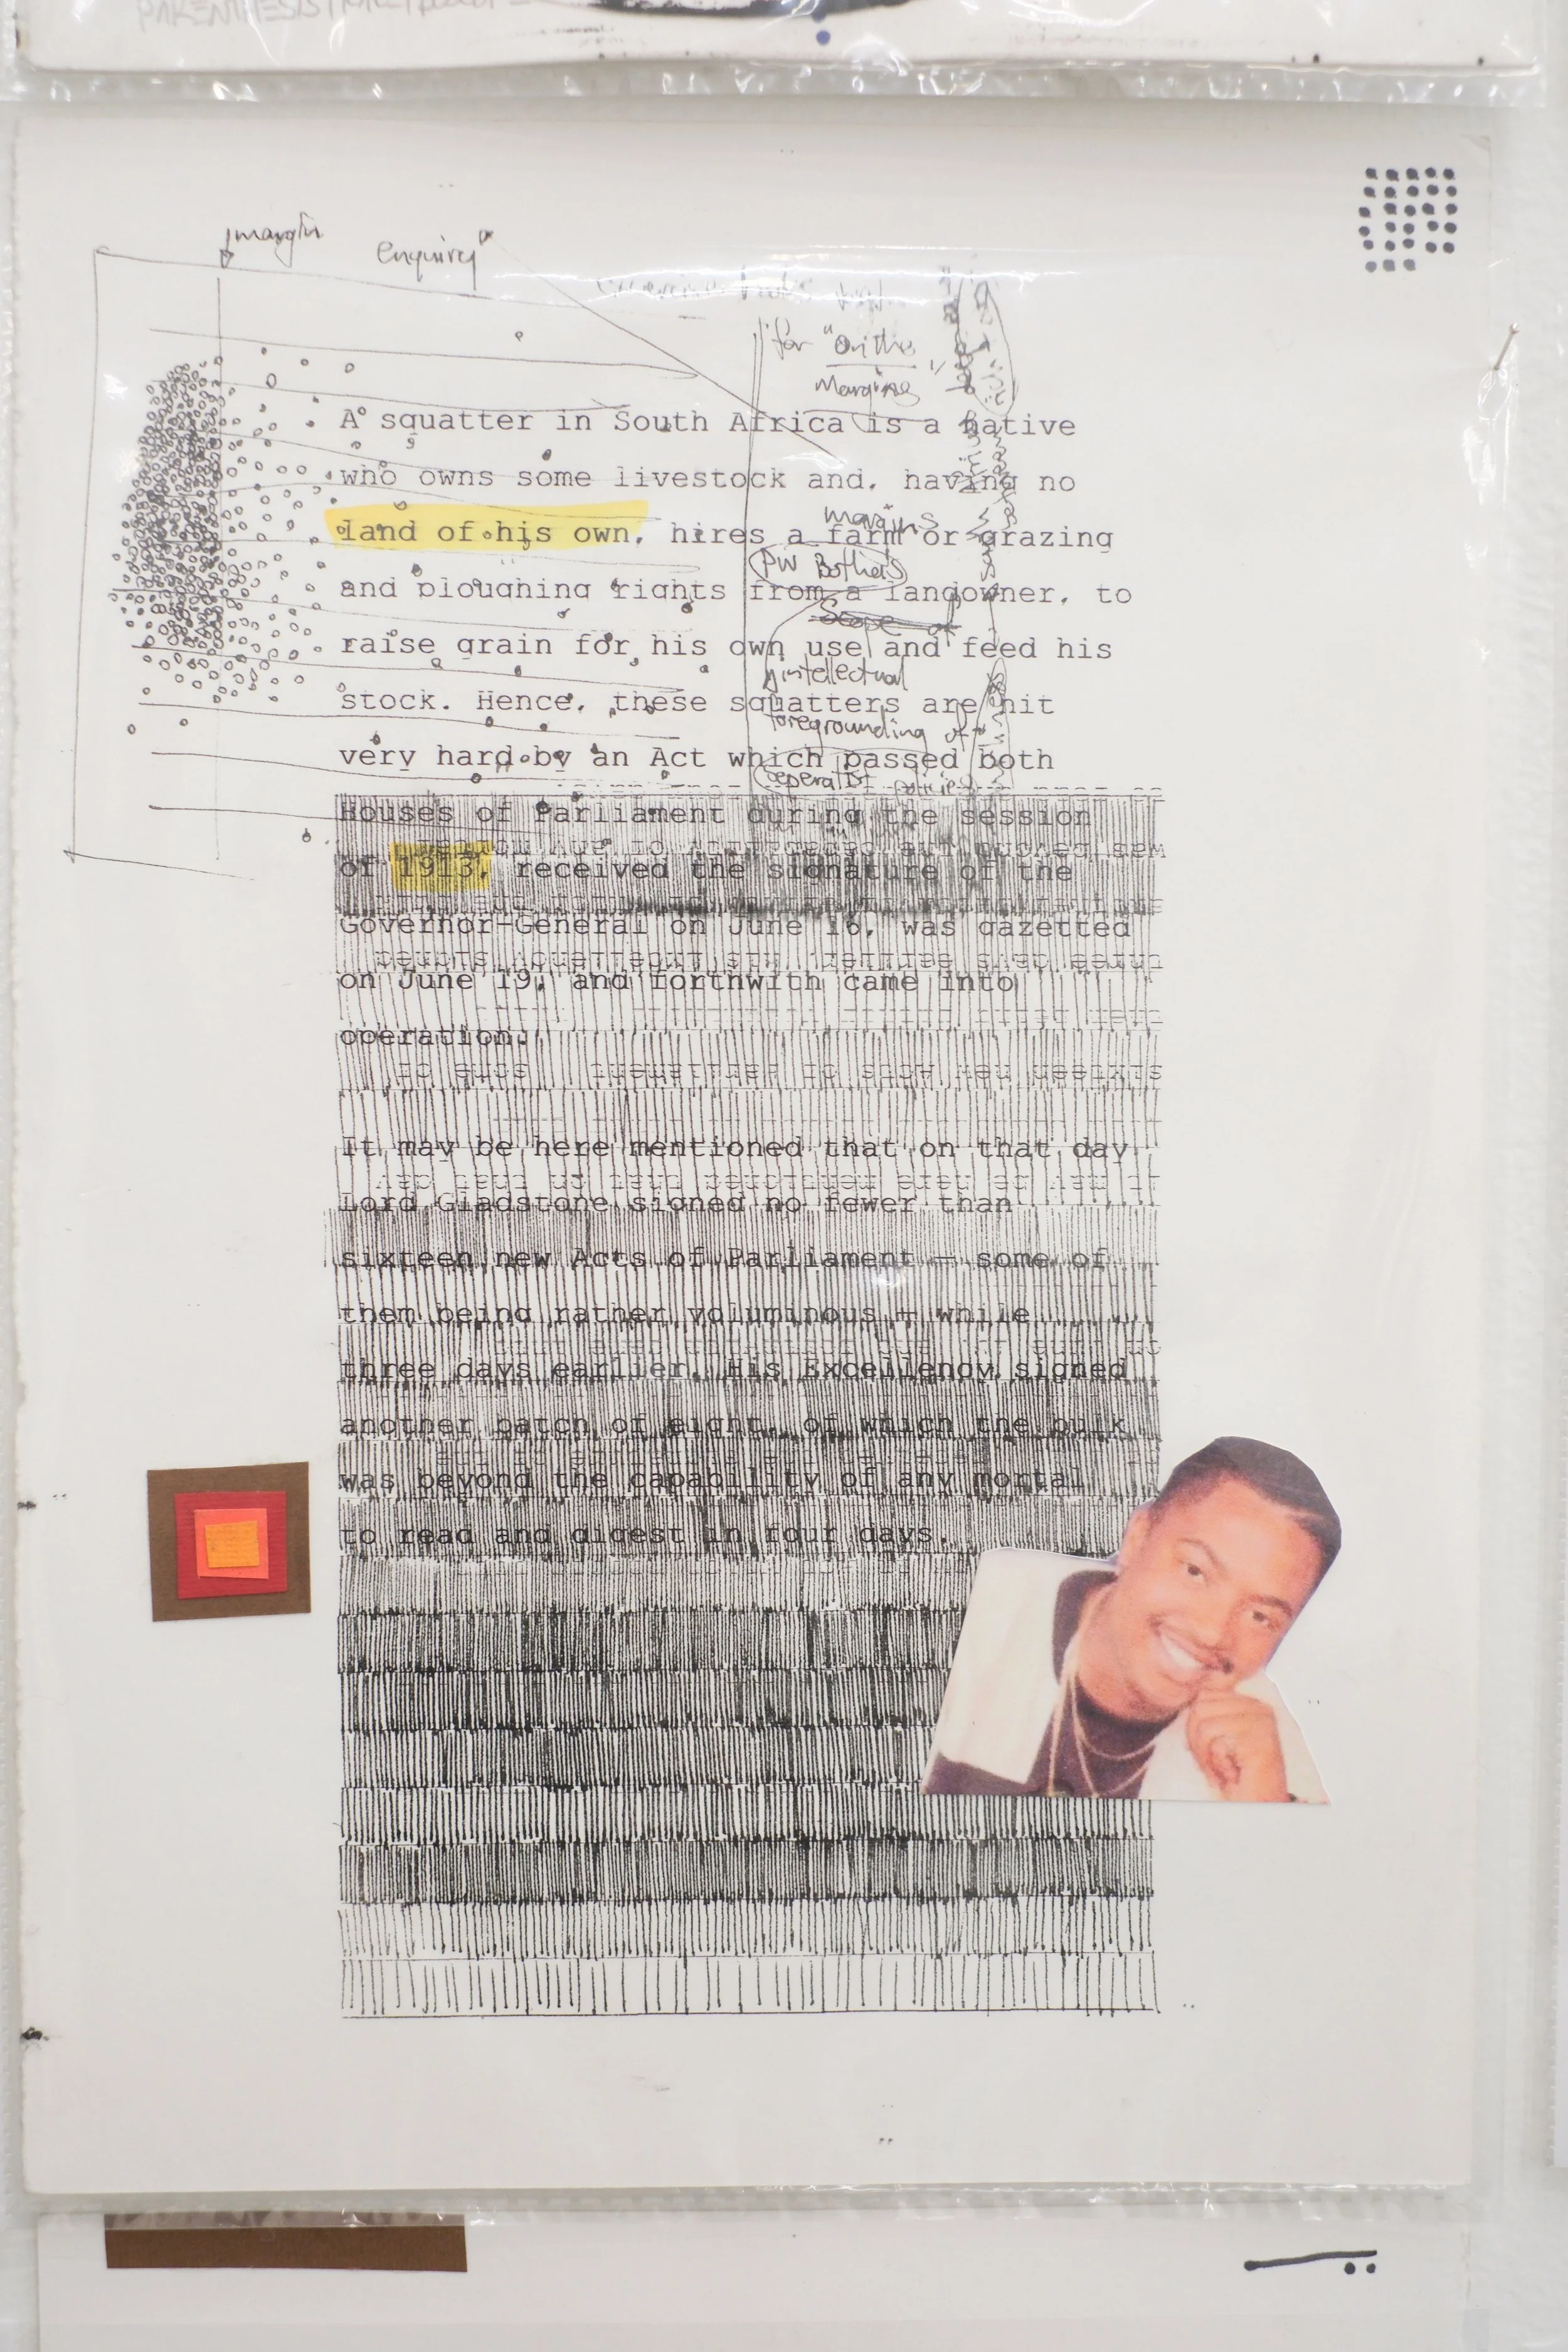 PARENTHESIS
margin
enquiry
for "On the
Margins"
A squatter in South Africa is a native
who owns some livestock and, having no
margins
land of his own, hires a farm or grazing
PW Botha's
and ploughing rights from a landowner, to
Scope of
raise grain for his own use and feed his
intellectual
stock. Hence, these squatters are hit
foregrounding of
very hard by an Act which passed both
seperatist
Houses of Parliament during the session
of 1913, received the signature of the
Governor-General on June 16, was gazetted
on June 19, and forthwith came into
operation.
It may be here mentioned that on that day
Lord Gladstone signed no fewer than
sixteen new Acts of Parliament — some of
them being rather voluminous — while
three days earlier, His Excellency signed
another batch of eight, of which the bulk
was beyond the capability of any mortal
to read and digest in four days.